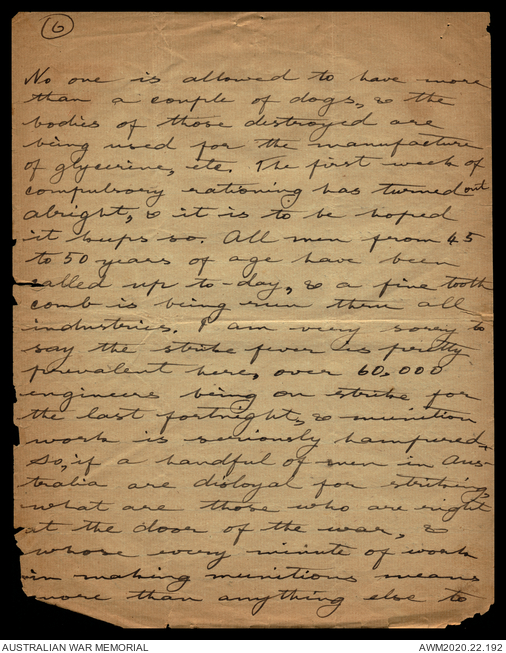 6
No one is allowed to have more
than a couple of dogs, & the
bodies of those destroyed are
being used for the manufacture
of glycerine, etc. The first week of
compulsory rationing has turned out
alright, & it is to be hoped
it keeps so. All men from 45
to 50 years of age have been
called up to-day, & a fine tooth
comb is being run thru all
industries. I am very sorry to
say the strike fever is pretty
prevalent here, over 60,000
engineers being on strike for
the last fortnight, & munition
work is seriously hampered.
So, if a handful of men in Aus-
tralia are disloyal for striking,
what are those who are right
at the door of the war, &
whose every minute of work
in making munitions means
more than anything else to
AUSTRALIAN WAR MEMORIAL
AWM2020.22.192